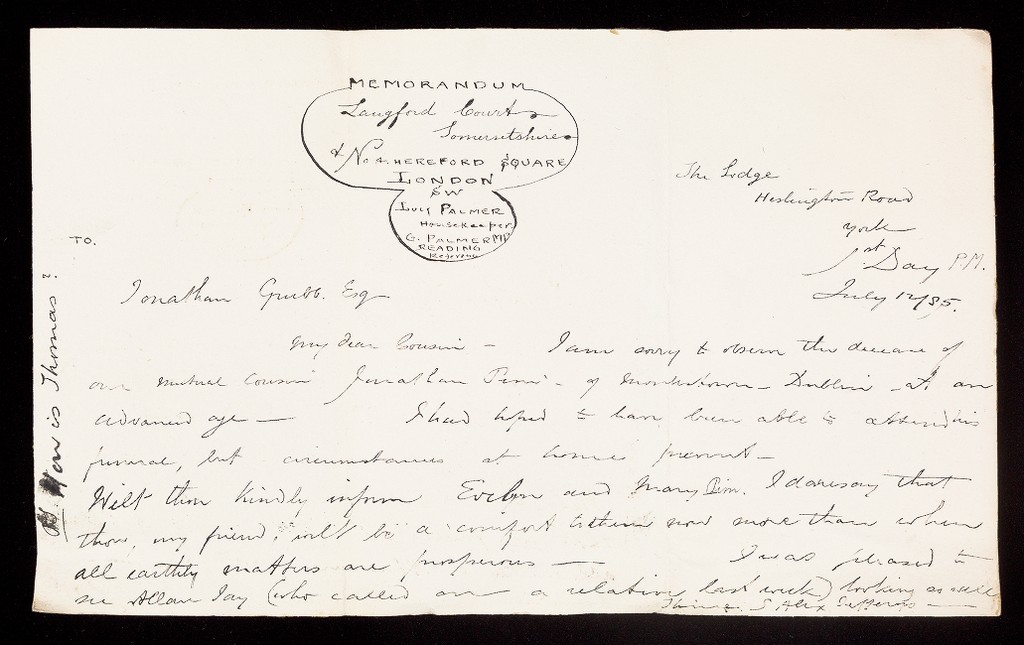 MEMORANDUM
Langford Court
Somersetshire
& No 4. HEREFORD SQUARE
LONDON
SW
LUCY PALMER
Housekeeper
G. PALMER MP
READING
Reference
The Lodge
Heslington Road
York
1st Day P.M.
July 12/85.
TO.
Jonathan Grubb. Esq
My dear Cousin - I am sorry to observe the decease of
our mutual cousin Jonathan Pim - of Monkstown - Dublin - at an
advanced age - I had hoped to have been able to attend his
funeral, but circumstances at home prevent -
Wilt thou kindly inform Evelyn and Mary Pim. I daresay that
thou, my friend, wilt be a comfort to them now more than when
all earthly matters are prosperous - I was pleased to
see Allan Jay (who called on a relative last week) looking as well
Thine S Alex
How is Thomas?